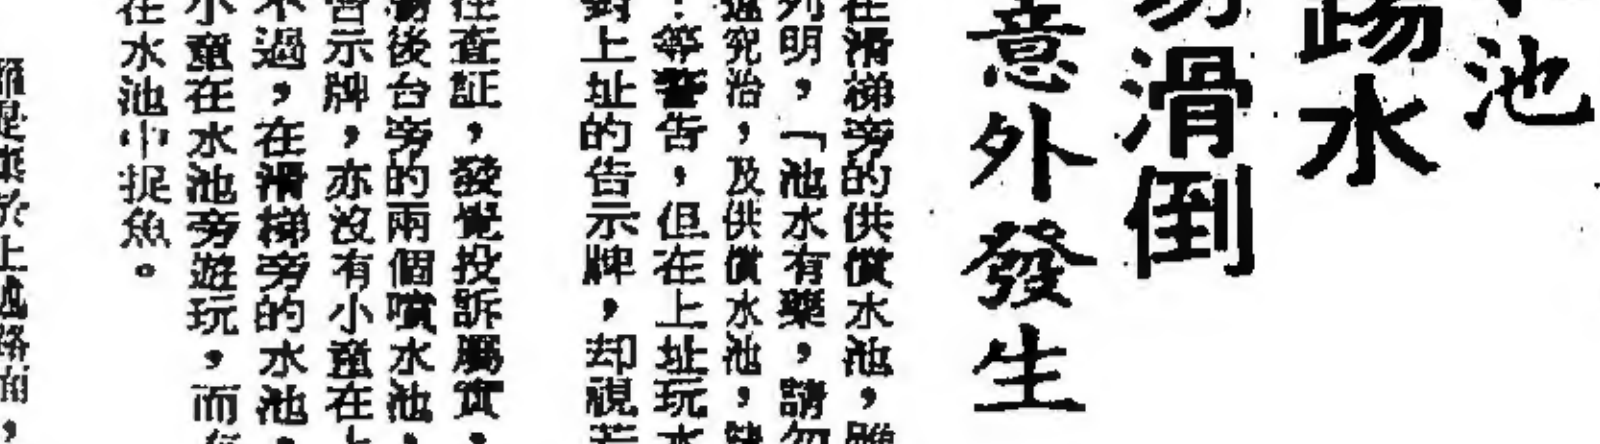 池
踢水
易滑倒
意外發生
在滑梯旁的供償水池，雖
列明，「池水有藥，請勿
追究治，及供償水池，
！等警告，但在上址玩水
對上址的告示牌，却視若
在查証，發覺投訴屬實，
滑後台旁的兩個噴水池，
告示牌，亦沒有小童在上
不過，在滑梯旁的水池，
小童在水池旁遊玩，而
在水池中捉魚。
上址路